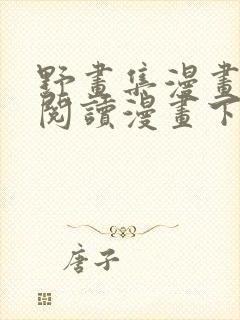 野畫集漫畫
閱讀漫畫下
唐子